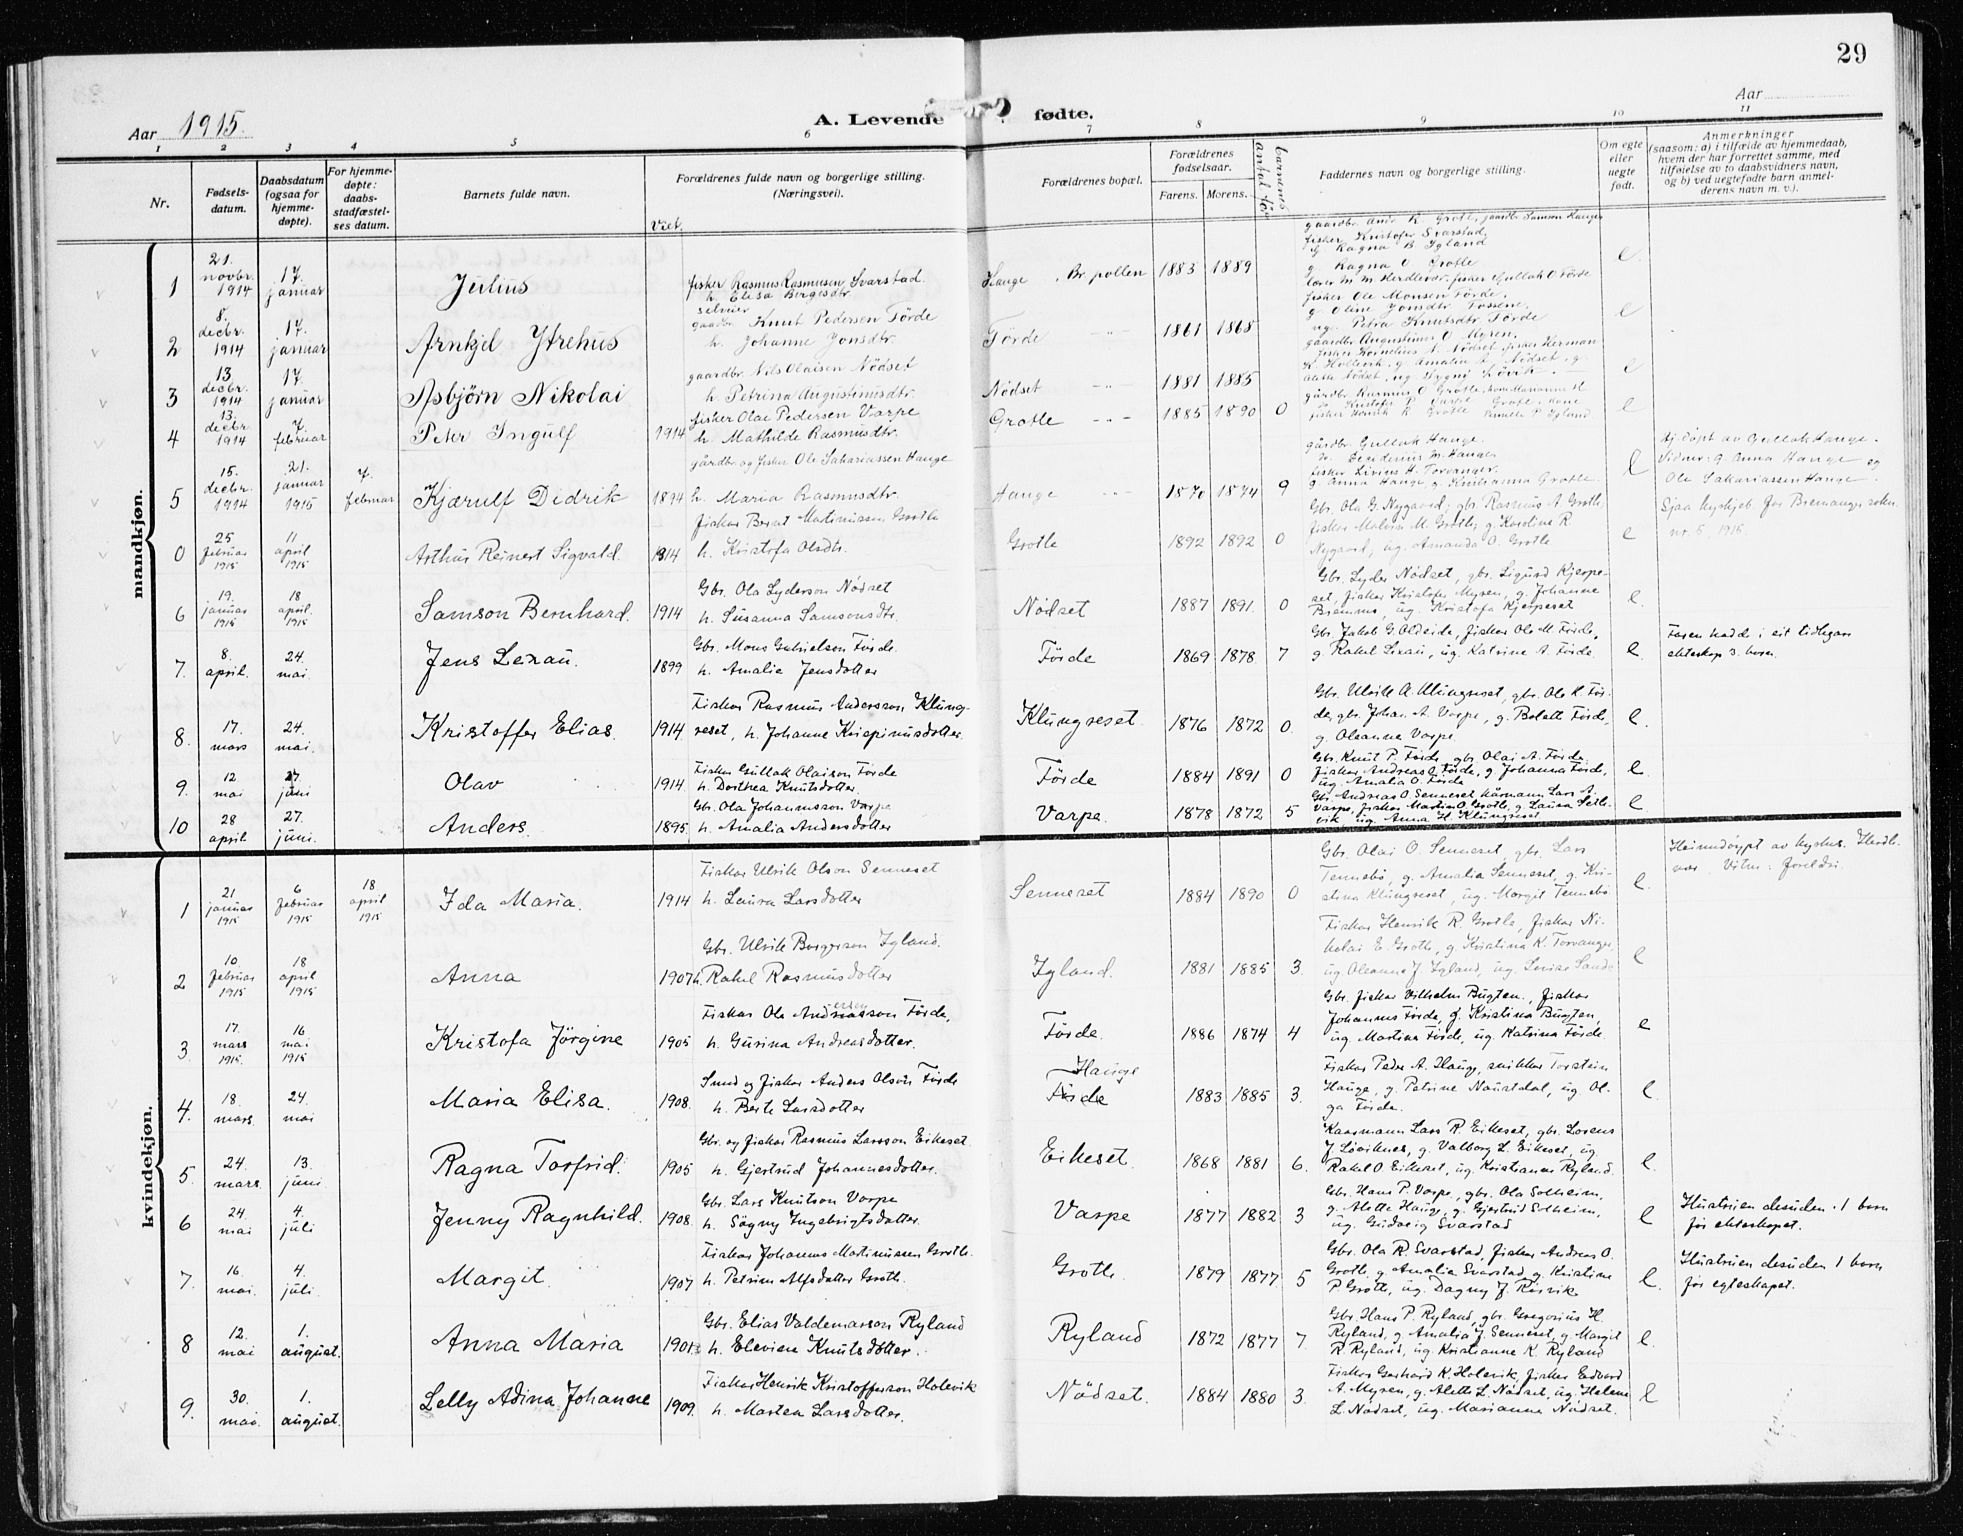 29
Aar 1915.
A. Levende fødte.
Aar
1 2 3 4 5 6 7 8 9 10 11
Nr.
Fødsels-
datum.
Daabsdatum
(ogsaa for
hjemme-
døpte).
For hjemme-
døpte:
daabs-
stadfæstel-
ses datum.
Barnets fulde navn.
Viet.
Forældrenes fulde navn og borgerlige stilling.
(Næringsvei).
Forældrenes bopæl.
Forældrenes
fødselsaar.
Farens. Morens.
Faddernes navn og borgerlige stilling.
Om egte
eller
uegte
født.
Anmerkninger
(saasom: a) i tilfælde av hjemmedaab,
hvem der har forrettet samme, med
tilføielse av to daabsvidners navn,
og b) ved uegtefødte barn anmel-
derens navn m. v.).
mandkjøn.
1 21. novbr. 1914 17. januar Julius
fisker Rasmus Rasmusen Svarstad
h. Elisa Birgesdtr.
Hauge Br. pollen 1883 1889
fisker Kristofer Svarstad,
g. Ragna B Igland
g. Ragna O. Grotle
e
2 8. decbr. 1914 17. januar Arnkjel Ytrehus
selveier gaardbr. Knut Pedersen Förde
h. Johanne Jonsdtr.
Förde 1861 1865
fisker Ole Monsen Förde,
ug. Petra Knutsdtr. Förde
e
3 13 decbr. 1914 17. januar Asbjörn Nikolai
gaardbr. Nils Olaisen Nödset
h. Petrina Augustinusdtr.
Nödset 1881 1885
gaardbr Augustinus O. Myren,
fisker Kornelius N. Nödset, fisker Herman
e
4 13. decbr. 1914 7. februar Peter Ingulf 1914
fisker Olai Pedersen Varpe
h. Mathilde Rasmusdtr.
Grotle 1885 1890 0
e
5 15. decbr. 1914 21. januar 1915 7. februar Kjærulf Didrik 1894
gårdbr. og fisker Ole Sakariassen Hauge
h. Maria Rasmusdtr.
Hauge 1870 1874 9
gårdbr. Gullak Hauge.
fisker Livius H. Torvanger.
g. Anna Hauge, g. Kristianna Grotle.
e
Hj. döpt av Gullak Hauge.
Vidner: g. Anna Hauge og
Ole Sakariassen Hauge.
0 25 februar 1915 11 april 1915 Arthur Reinert Sigvald. 1914
Fiskar Bernt Martinussen Grotle
h. Kristofa Olsdtr.
Grotle 1892 1892 0
Gbr. Ola G. Nygaard; gbr Rasmus A Grotle,
fiskar Malvin M. Grotle; g. Karoline R.
Nygaard, ug. Amanda O. Grotle
e
Sjaa kyrkjeb for Bremanger sokn
nr. 5, 1915.
6 19. januar 1915 18 april. 1915 Samson Bernhard. 1914
Gbr. Ola Lyderson Nödset
h. Susanna Samsonsdtr.
Nödset 1887 1891. 0
Gbr. Lyder Nödset, gbr. Sigurd Kjerpe-
set, fiskar Kristofer Myren, g. Johanne
Bremnes, ug. Kristofa Kjerpeset
e.
7. 8. april. 24. mai. Jens Lexau. 1899
Gbr. Mons Gabrielson Förde.
h. Amalie Jensdotter
Förde 1869 1878 7
Gbr. Jakob G. Oldeide, fiskar Ole M. Förde,
g. Rakel Lexau, ug. Katrine A. Förde.
e.
Faren hadde i eit tidlegare
ekteskap 3. born.
8. 17. mars 24. mai. Kristoffer Elias. 1914
Fiskar Rasmus Andersson Klung-
reset, h. Johanne Krispinusdotter.
Klungreset. 1876 1872 0.
Gbr. Ulrik A. Klungreset, gbr. Ole K. För-
de, gbr. Johan A. Varpe, g. Bolette Förde,
g. Oleanne Varpe
e.
9. 12 mai 27. juni Olav 1914
Fiskar Gullak Olaison Förde
h. Dorthea Knutsdotter.
Förde 1884 1891 0
Gbr. Knut P. Förde, gbr. Olai A. Förde,
fiskar Andreas O. Förde, g. Johanna Förde,
ug. Amalia O. Förde
e.
10 28 april. 27. juni. Anders. 1895
Gbr. Ola Johannesson Varpe
h. Amalia Andersdotter
Varpe. 1878 1872 5
Gbr. Andreas O. Senneset, kårmann Lars A.
Varpe, fiskar Martin O. Grotle, g. Laura Setle-
vik, ug. Anna H. Klungreset
e
kvindekjøn.
1 21 januar 1915 6 februar 1915 18 april 1915 Ida Maria. 1914
Fiskar Ulrik Olson Senneset
h. Laura Larsdotter
Senneset 1884 1890 0
Gbr. Olai O. Senneset, gbr. Lars
Tennebö, g. Amalia Senneset, g. Kri-
stina Klungreset, ug. Margit Tennebö
e.
2 10 februar 1915 18 april 1915 Anna 1907
Gbr. Ulrik Borgerson Igland.
h. Rakel Rasmusdotter
Igland. 1881 1885 3.
Fiskar Henrik R. Grotle, fiskar Ni-
kolai E. Grotle, g. Kristina K. Torvanger,
ug. Oleanne J. Igland, ug. Lovise Sande
e
3 17. mars 1915. 16 mai 1915 Kristofa Jörgine 1905
Fiskar Ole Andriasson Förde,
h. Gurina Andreasdotter.
Förde. 1886 1874 4
Gbr. fiskar Vilhelm Bugten., fiskar
Johannes Förde, g. Kristina Bugten,
ug. Martina Förde, ug. Katrina Förde.
e
4. 18. mars. 24. mai Maria Elisa. 1908.
Smed og fiskar Anders Olson Förde
h. Berte Larsdotter
Hauge
Förde 1883 1885 3.
Fiskar Peder A. Hauge, snikkar Torstein
Hauge, g. Petrine Naustdal, ug. Ol-
ga Förde.
e.
5. 24. mars. 13. juni. Ragna Torfrid. 1905
Gbr. og fiskar Rasmus Larsson Eikeset.
h. Gjertrud Johannesdotter.
Eikeset. 1868 1881 6.
Kaarmann Lars R. Eikeset, gbr. Lorens
J. Löviknes, g. Valborg L. Eikeset, ug.
Rakel O. Eikeset, ug. Kristianne Ryland.
e.
6 24. mai 4. juli Jenny Ragnhild. 1908.
Gbr. Lars Knutson Varpe
h. Sögny Ingebrigtsdotter.
Varpe 1877 1882 3
Gbr. Hans P. Varpe, gbr. Ola Solheim,
g. Alette Hauge, g. Gjertrud Solheim,
ug. Gudveig Svarstad
e
Hustruen desuden 1 born
för ekteskapet.
7. 16. mai. 4. juli. Margit. 1907
Fiskar Johannes Martinussen Grotle.
h. Petrine Alfsdotter Grotle.
Grotle. 1879 1877 5
Gbr. Ola R. Svarstad, fiskar Andreas O.
Grotle, g. Amalia Svarstad, g. Kristine
P. Grotle, ug. Dagny J. Risvik.
e.
Hustruen desuden 1 born
för egteskapet.
8 12. mai 1. august. Anna Maria 1901.
Gbr. Elias Valdemarsson Ryland
h. Eleviene Knutsdotter.
Ryland 1872 1877 7.
Gbr. Hans P. Ryland, gbr. Gregorius H.
Ryland, g. Amalia J. Senneset, g. Margit
R. Ryland, ug. Kristianne K. Ryland
e.
9. 30. mai. 1. august. Lelly Adina Johanne 1909.
Fiskar Henrik Kristofferson Holevik
h. Marten Larsdotter.
Nödset. 1884 1880 3.
Fiskar Gerhard K. Holevik, fiskar Edvard
A. Myren, g. Alette L. Nödset, ug. Helene
L. Nödset, ug. Marianne Nödset.
e